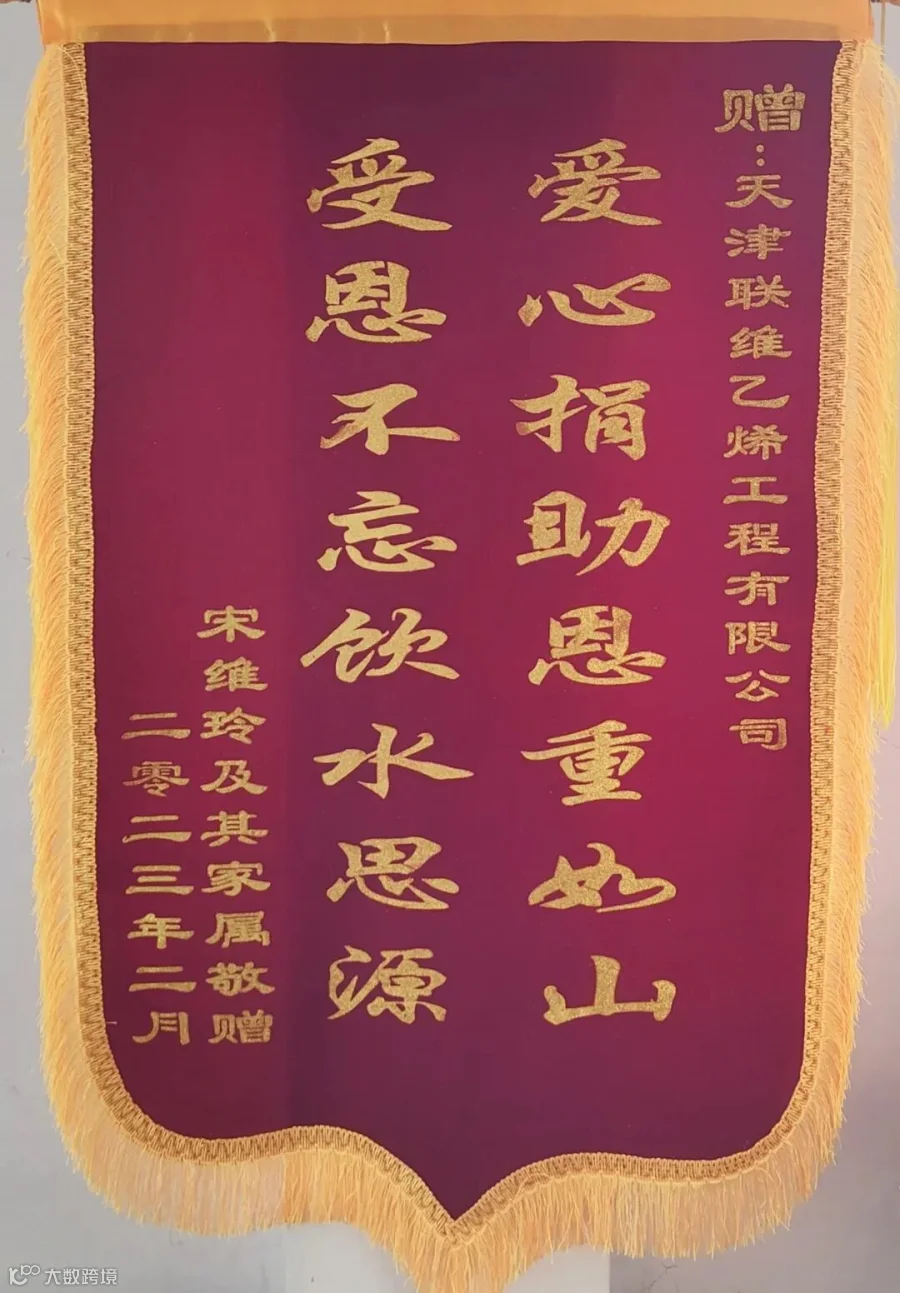 赠:天津联维乙烯工程有限公司
爱心捐助恩重如山
受恩不忘饮水思源
宋维玲及其家属敬赠
二零二三年二月
大数跨境